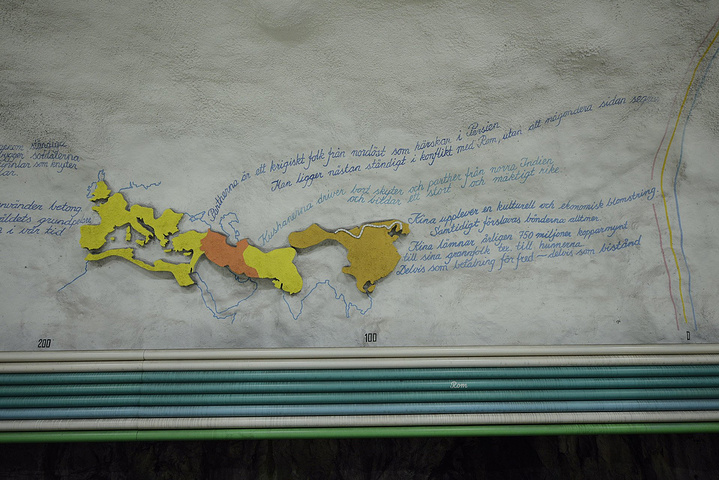 ständiga
bygger soldaterna
som knyter
använder betong
väldets grundpelare
i vår tid
Partherna är ett krigiskt folk från nordöst som härskar i Persien
Kan ligger nästan ständigt i konflikt med Rom, utan att någondera sidan segrar
Kushanerna driver bort skyter och parther från norra Indien
och bildar ett stort och mäktigt rike
Kina upplever en kulturell och ekonomisk blomstring.
Samtidigt förslavas bönderna alltmer
Kina lämnar årligen 750 miljoner kopparmynt
till sina grannfolk tex. till hunnerna
Delvis som betalning för fred – delvis som bistånd
200
100
0
Rom